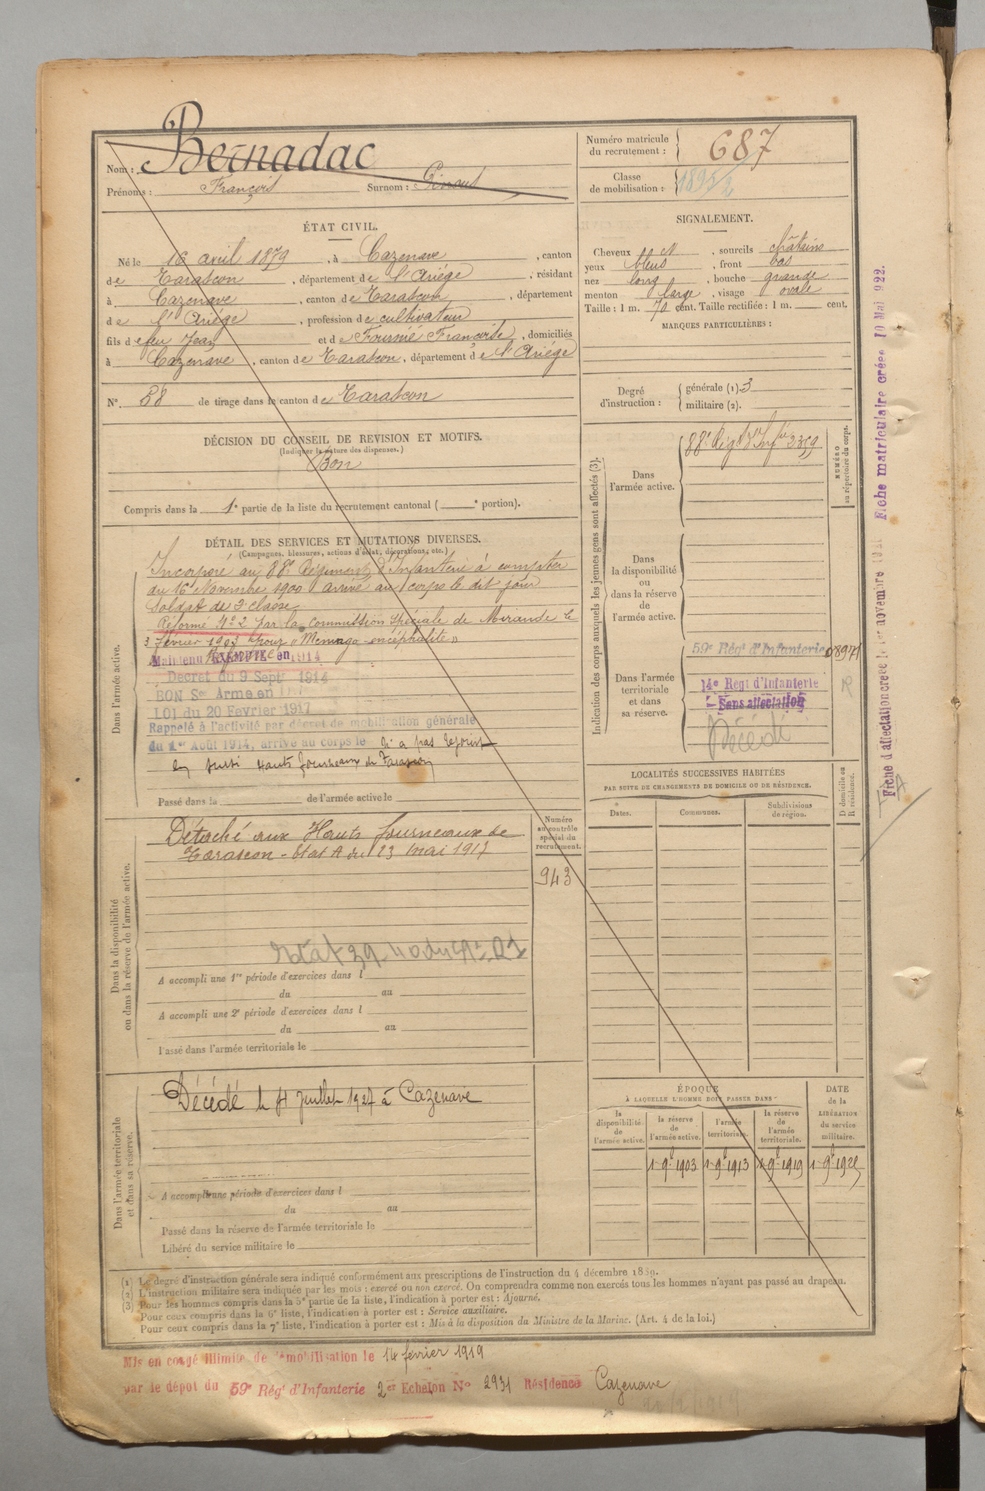 Nom : Bernadac
Prénoms : François Surnom :
Numéro matricule du recrutement : 687
Classe de mobilisation :
ÉTAT CIVIL.
Né le 16 avril 1879, à Cazenave, canton
de Tarascon, département de l'Ariège, résidant
à Cazenave, canton de Tarascon, département
de l'Ariège, profession de cultivateur
fils de feu Jean et de Fournié Françoise, domiciliés
à Cazenave, canton de Tarascon, département de l'Ariège
N° 58 de tirage dans le canton de Tarascon
SIGNALEMENT.
Cheveux et sourcils châtains
yeux bleus, front bas
nez long, bouche grande
menton large, visage ovale
Taille : 1 m. 70 cent. Taille rectifiée : 1 m. cent.
MARQUES PARTICULIÈRES :
Degré d'instruction : générale (1). 3
militaire (2).
DÉCISION DU CONSEIL DE REVISION ET MOTIFS.
(Indiquer la nature des dispenses.)
Bon
Compris dans la 1e partie de la liste du recrutement cantonal ( e portion).
DÉTAIL DES SERVICES ET MUTATIONS DIVERSES.
(Campagnes, blessures, actions d'éclat, décorations, etc.)
Dans l'armée active.
Incorporé au 88e Régiment d'Infanterie à compter
du 16 Novembre 1900 arrivé au corps le dit jour
Soldat de 2e classe
Réformé N° 2 par la commission Spéciale de Mirande le
3 février 1903 pour « Méningo-encéphalite »
Maintenu EXEMPTE en 1914
Décret du 9 Sept 1914
BON Sce Armé en
LOI du 20 Février 1917
Rappelé à l'activité par décret de mobilisation générale
du 1er Août 1914, arrivé au corps le n'a pas rejoint
Hauts fourneaux de Tarascon
Passé dans la de l'armée active le
Indication des corps auxquels les jeunes gens sont affectés (3).
NUMÉRO au répertoire du corps.
Dans l'armée active.
88e Régt d'Infie 2359
Dans la disponibilité ou dans la réserve de l'armée active.
Dans l'armée territoriale et dans sa réserve.
59e Régt d'Infanterie
14e Régt d'Infanterie
Sans affectation
Décédé
R
Dans la disponibilité ou dans la réserve de l'armée active.
Détaché aux Hauts fourneaux de
Tarascon - état A du 23 mai 1917
Numéro au contrôle spécial du recrutement.
943
A accompli une 1re période d'exercices dans l
du au
A accompli une 2e période d'exercices dans l
du au
Passé dans l'armée territoriale le
LOCALITÉS SUCCESSIVES HABITÉES
PAR SUITE DE CHANGEMENTS DE DOMICILE OU DE RÉSIDENCE.
Dates. Communes. Subdivisions de région. D domicile ou R résidence.
Dans l'armée territoriale et dans sa réserve.
Décédé le Juillet 1927 à Cazenave
A accompli une période d'exercices dans l
du au
Passé dans la réserve de l'armée territoriale le
Libéré du service militaire le
ÉPOQUE
À LAQUELLE L'HOMME DOIT PASSER DANS
la disponibilité de l'armée active. la réserve de l'armée active. l'armée territoriale. la réserve de l'armée territoriale.
DATE de la LIBÉRATION du service militaire.
1 9e 1903 1 9e 1913 1 9e 1919 1 9e 1925
(1) Le degré d'instruction générale sera indiqué conformément aux prescriptions de l'instruction du 4 décembre 1889.
(2) L'instruction militaire sera indiquée par les mots : exercé ou non exercé. On comprendra comme non exercés tous les hommes n'ayant pas passé au drapeau.
(3) Pour les hommes compris dans la 5e partie de la liste, l'indication à porter est : Ajourné.
Pour ceux compris dans la 6e liste, l'indication à porter est : Service auxiliaire.
Pour ceux compris dans la 7e liste, l'indication à porter est : Mis à la disposition du Ministre de la Marine. (Art. 4 de la loi.)
Mis en congé illimité de démobilisation le 14 février 1919
par le dépôt du 59e Régt d'Infanterie 2e Echelon N° 2931 Résidence Cazenave
Fiche matriculaire créée 10 Mai 1922.
Fiche d'affectation créée le 1er novembre